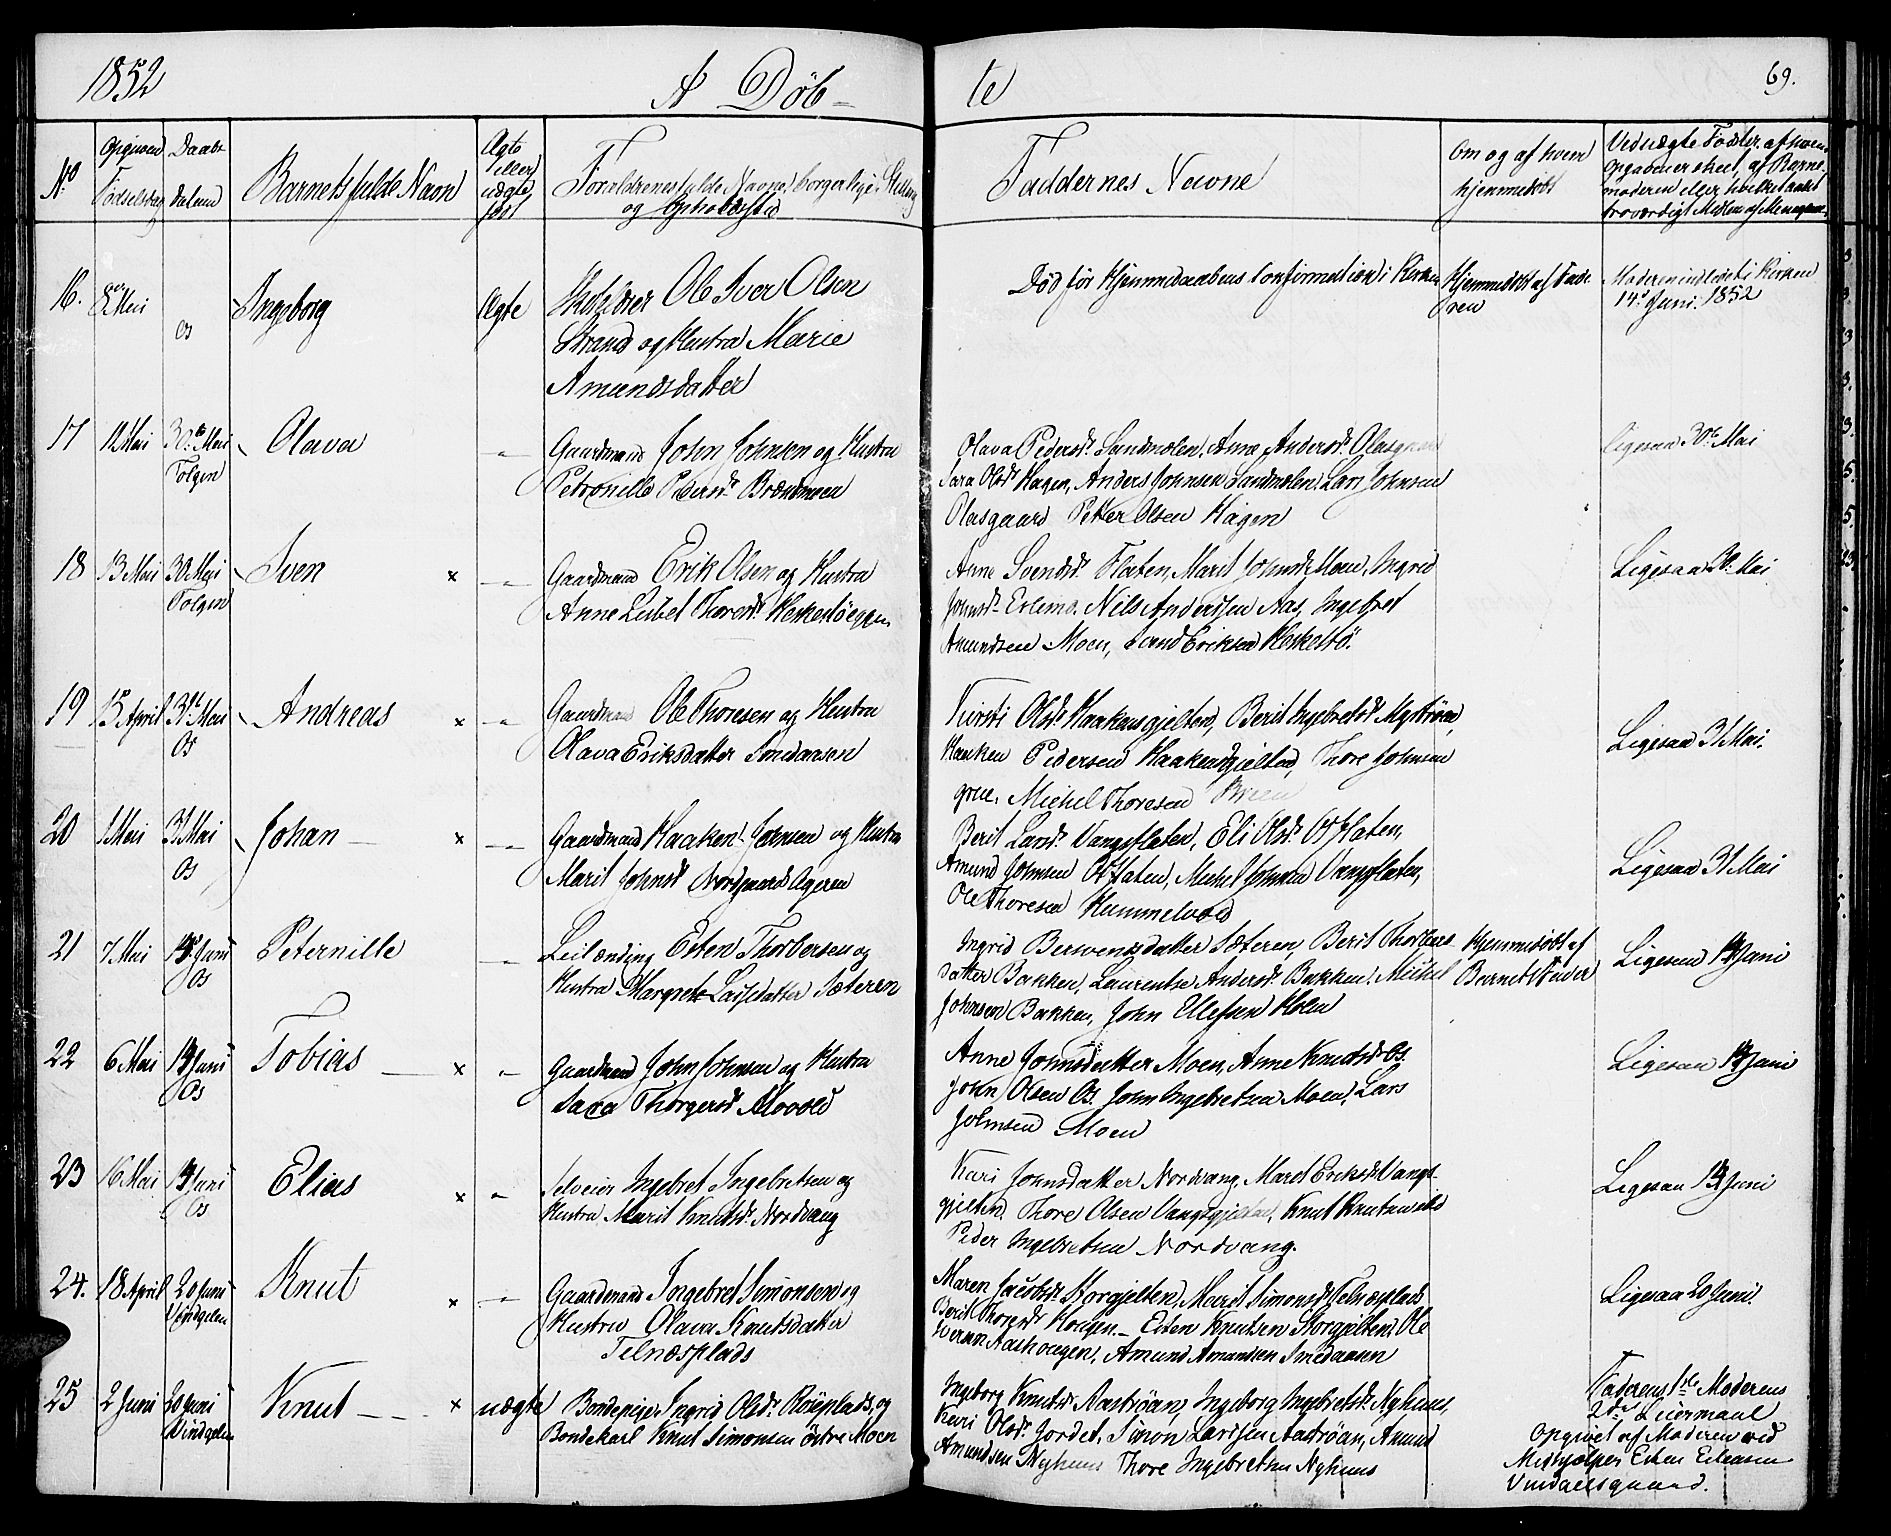 1852 A Döb= te 69.
No Opgiven Fødselsdag Daabs Datum Barnets fulde Navn Ægte eller uægte født Forældrenes fulde Navne, borgerlige Stilling og Opholdssted Faddernes Navne Om og af hvem hjemmedøbt
Ved uægte Fødsler, af hvem
Opgaven er skeet, af Barne-
moderen eller hvilket andet
troværdigt Medlem af
16. Mai Os Ingeborg Ægte Skolelærer Ole Iver Olsen
Strand og Hustru Marie
Amundsdatter
Død før Hjemmedaabens Confirmation i Kirken
Hjemmedøbt af Fade-
ren
Moderen indledet i Kirken
14de Juni 1852
17 12 Mai 30te Mai Tolgen Olava -"- Gaardmand John Johnsen og Hustru
Petronille Pedersdr
Olava Pedersdr Sandmælen, Anne Andersdr Olasgaard
Sara Olsdr Hagen, Anders Johnsen Sandmælen, Lars Johnsen
Olasgaard Petter Olsen Hagen
ligesaa 30te Mai
18 13 Mai 30 Mai Tolgen Sven x -"- Gaardmand Erik Olsen og Hustru
Anne Lisbet Thoresdr
Anne Svendsdr Flaten, Marit Johnsdr Moen, Ingrid
Johnsdr Erlimo, Nils Andersen Aas, Ingebret
Amundsen Moen, Eriksen
Ligesaa 30 Mai
19 15 April 31te Mai Os Andreas x -"- Gaardmand Ole Thoresen og Hustru
Olava Eriksdatter Smedaasen
Kirsti Olsdr Haakensgjelten, Berit Ingebretsdr
Haaken Pedersen Haakensgjelten, Thore Johnsen
Michel Thoresen
Ligesaa 31 Mai.
20 1 Mai 31 Mai Os Johan x -"- Gaardmand Haaken Jonsen og Hustru
Marit Johnsdr Nordgaard
Berit Larsdr Vangsflaten, Eli Olsdr
Amund Johnsen Michel Johnsen Vangsflaten,
Ole Thoresen Hummelvold
Ligesaa 31 Mai
21 7 Mai 14 Juni Os Peternille -"- Leilænding Esten Thorbersen og
Hustru Margrete Larsdatter Sæteren
Ingrid Bersvendsdatter Sæteren, Berit Thorbers-
datter Bakken, Laurentse Andersdr Bakken, Michel
Johnsen Bakken, John Ellefsen Holm
Hjemmedøbt af
Barnets Fader
Ligesaa 14 Juni
22 6 Mai 14 Juni Os Tobias x " Gaardmand John Johnsen og Hustru
Sara Thorgersdr Movold
Anne Johnsdatter Moen, Anne Knutsdr Os
John Olsen Os John Ingebretsen Moen, Lars
Johnsen Moen
Ligesaa 14 Juni
23 16 Mai 14 Juni Os Elias x " Selveier Ingebret Ingebretsen og
Hustru Marit Knutsdr Nordvang
Kari Johnsdatter Nordvang, Maret Eriksdr Vangs-
gjelten, Thore Olsen Vangsgjelten, Knut Knutsen
Peder Ingebretsen Nordvang.
Ligesaa 14 Juni
24. 18 April 20 Juni Vindgelen Knut x -"- Gaardmand Ingebret Simonsen og
Hustru Olava Knutsdatter
Telnæsplads
Maren Jacobsdr Storgjelten, Marit Simonsdr Telnæsplads
Berit Thoresdr Haugen - Esten Knutsen Storgjelten, Ole
Iversen Aashaugen, Amund Amundsen Smedaasen
Ligesaa 20 Juni.
25 2 Juni 20 Juni Vindgelen Knut x uægte Bondepige Ingrid Olsdr Røeplads, og
Bondekarl Knut Simonsen østre Moen
Ingeborg Knutsdr Aastrøan, Ingeborg Ingebretsdr Nyhuus,
Kari Olsdr Jordet, Simon Larssen Aastrøan, Amund
Amundsen Nyhuus Thore Ingebretsen Nyhuus
Faderens 1ste Moderens
2det Leiermaal
Opgivet af Moderen ved
Medhjælper Esten Estensen
Vindalsgaard.